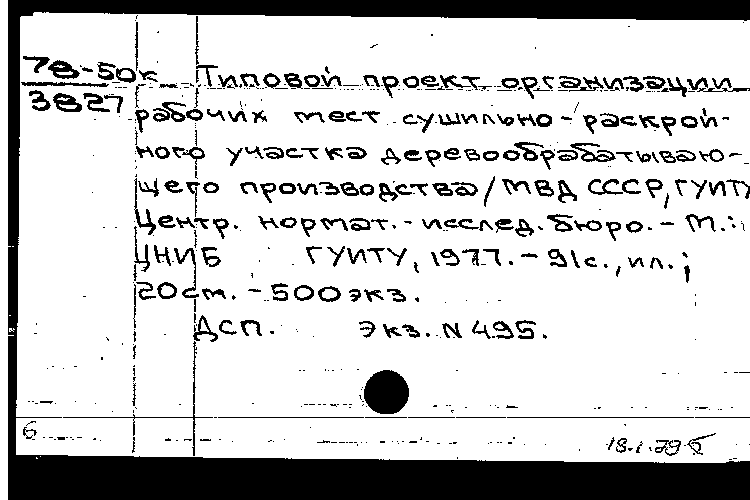 78-50к
3827
Типовой проект организации
рабочих мест сушильно-раскрой-
ного участка деревообрабатываю-
щего производства/МВД СССР, ГУИТУ
Центр. нормат.-исслед. бюро. - М.:
ЦНИБ ГУИТУ, 1977. - 91с., ил.;
20cm. - 500 экз.
ДСП. Экз. N 495.
6
18.1.79